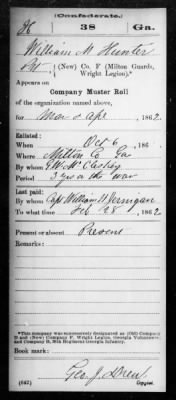 (Confederate.)
H 38 Ga.
William M. Hunter
Pvt (New) Co. F (Milton Guards, Wright Legion),*
Appears on
Company Muster Roll
of the organization named above,
for Mar & Apr, 1862
Enlisted:
When Oct 6, 186
Where Milton Co Ga
By whom G. W. McCleskey
Period 3 yrs or the war
Last paid:
By whom Capt William H Jernigan
To what time Feb 28, 1862
Present or absent Present
Remarks:
*This company was successively designated as (Old) Company D and (New) Company F, Wright Legion, Georgia Volunteers, and Company 38th Regiment Georgia Infantry.
Book mark:
(642) Geo. J. Drew
Copyist.